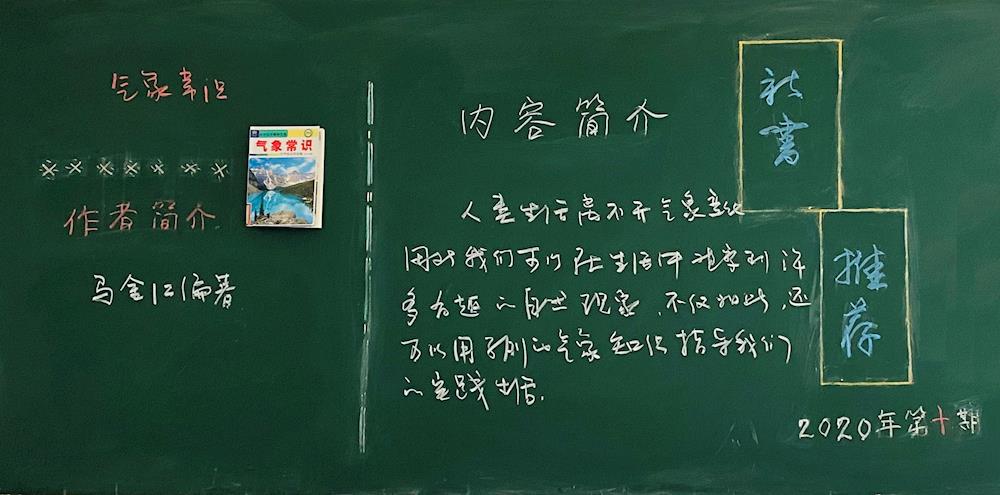 气象常识
气象常识
作者简介
马金江编著
内容简介
人类生活离不开气象变化
同时我们可以在生活中观察到许
多有趣的自然现象，不仅如此，还
可以用所学的气象知识指导我们
的实践生活。
新书
推荐
2020年第十期